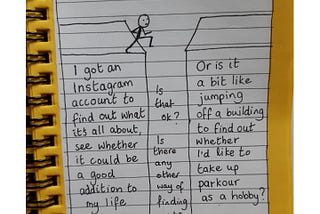 I got an
Instagram
account to
find out what
it's all about,
see whether
it could be
a good
addition to
my life
Is
that
ok?
Is
there
any
other
way of
finding
Or is it
a bit like
jumping
off a building
to find out
whether
I'd like to
take up
parkour
as a hobby?